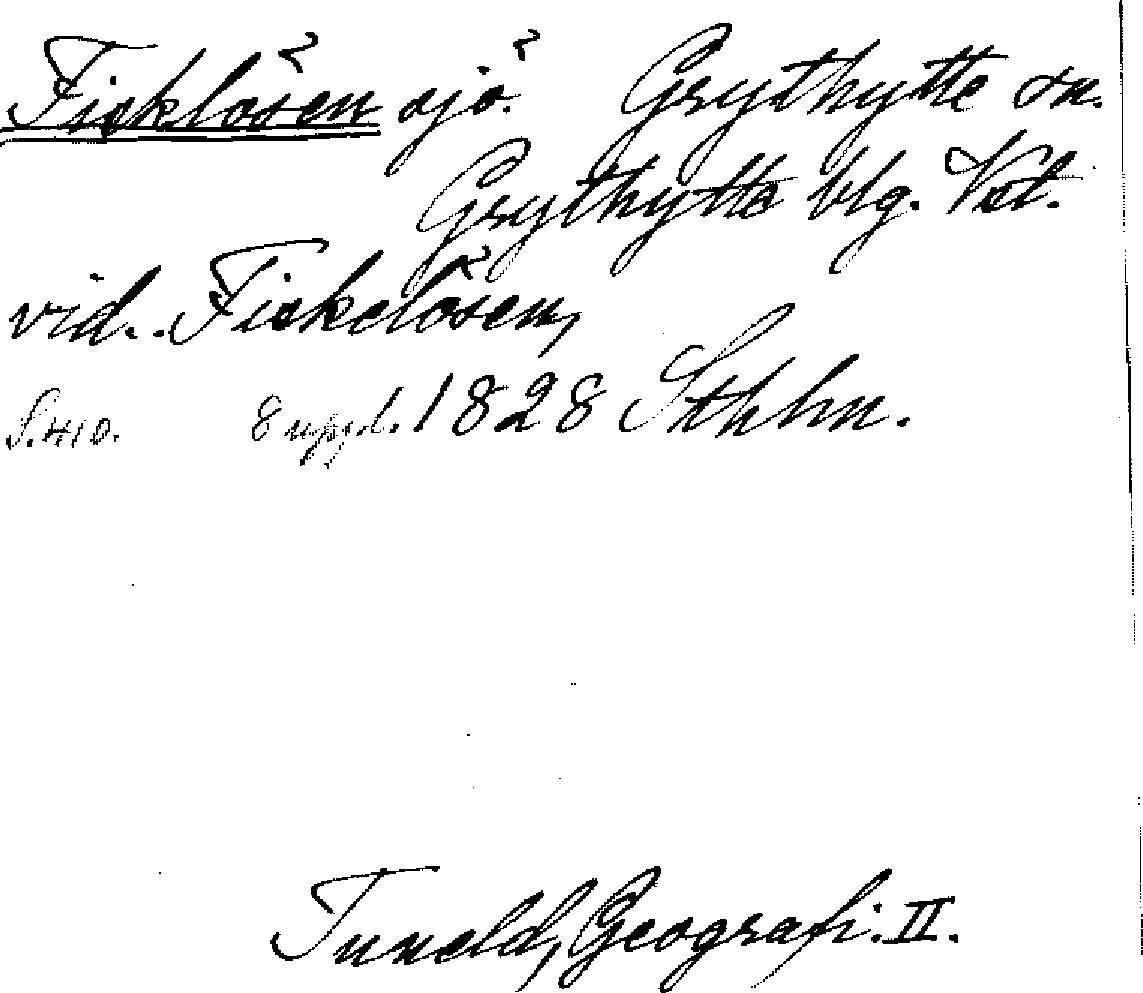 Fisklösen sjö. Grythytte sn.
Grythytte blg. Vstl.
vid. Fiskelösen,
S. 410. 8 uppl. 1828 Sthhn.
Tuneld, Geografi. II.